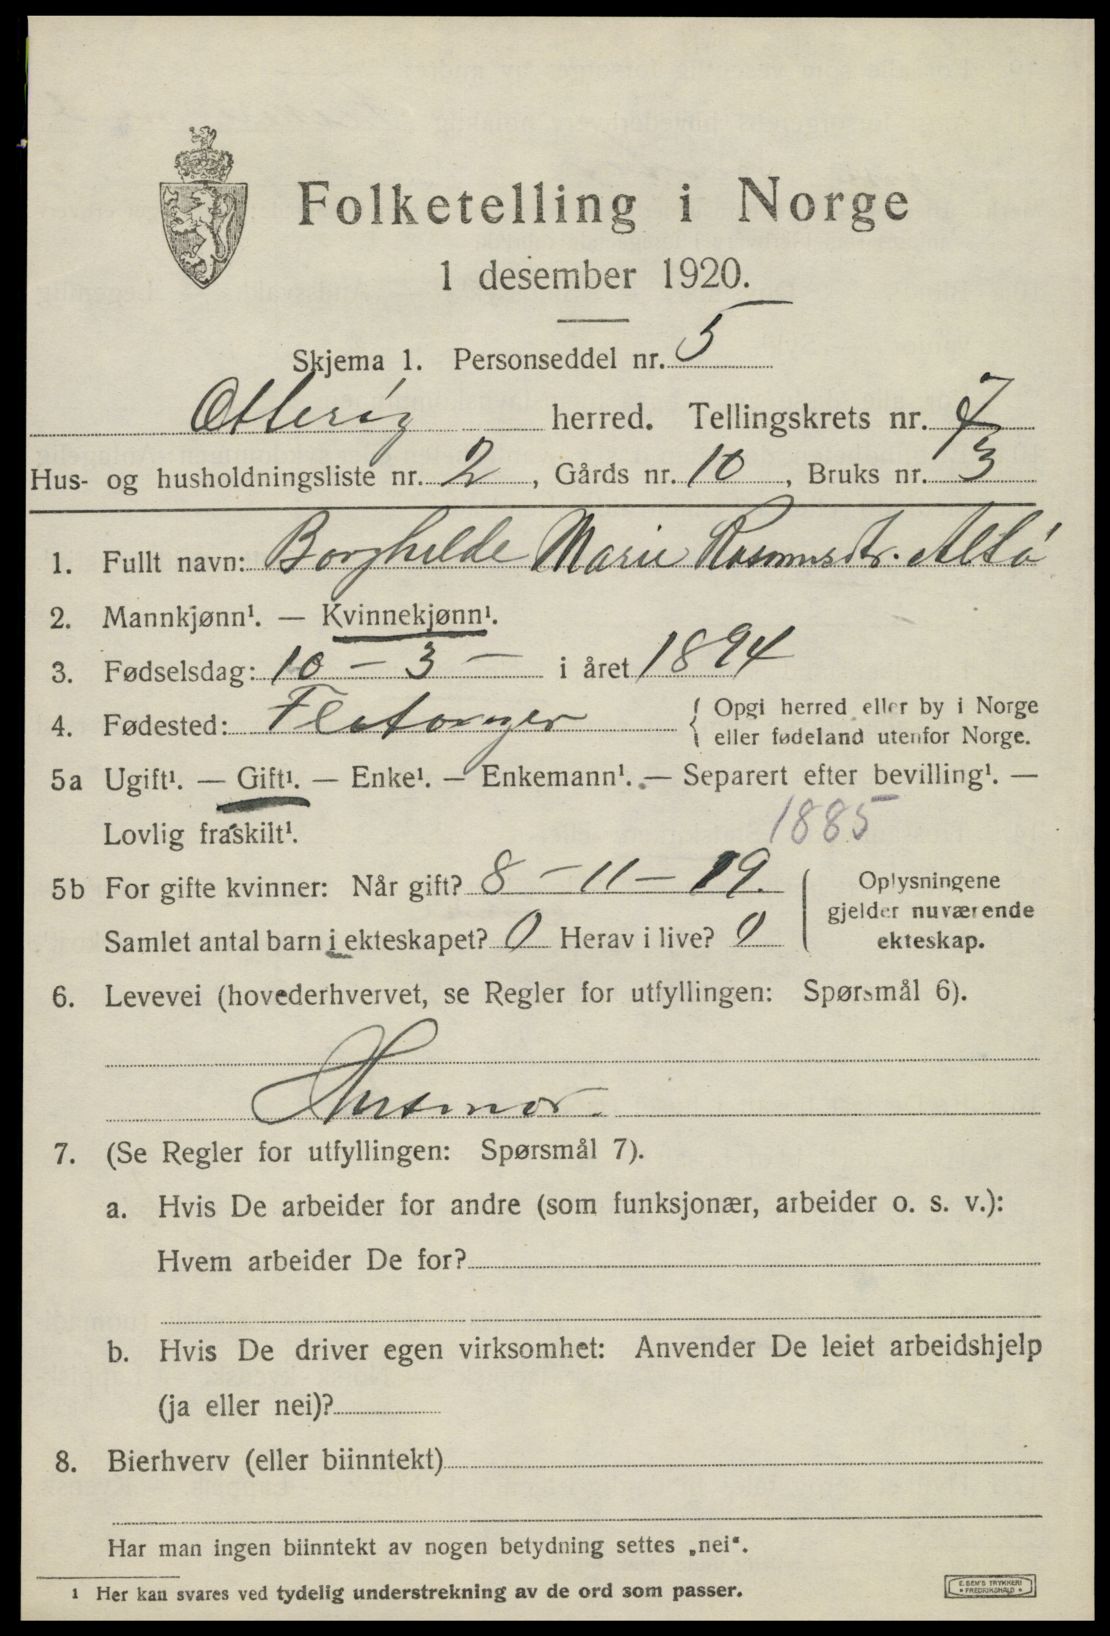 Folketelling i Norge
1 desember 1920.
Skjema 1. Personseddel nr. 5
Otterøy herred. Tellingskrets nr. 7
Hus- og husholdningsliste nr. 2, Gårds nr. 10, Bruks nr. 3
1. Fullt navn: Borghilde Marie Rasmusdtr. Altø
2. Mannkjønn¹. — Kvinnekjønn¹.
3. Fødselsdag: 10 – 3 – i året 1894
4. Fødested: Flatanger { Opgi herred eller by i Norge
eller fødeland utenfor Norge.
5a Ugift¹. — Gift¹. — Enke¹. — Enkemann¹. — Separert efter bevilling¹. —
Lovlig fraskilt¹. 1885
5b For gifte kvinner: Når gift? 8 – 11 – 19. ( Oplysningene
gjelder nuværende
Samlet antal barn i ekteskapet? 0 Herav i live? 0 ekteskap.
6. Levevei (hovederhvervet, se Regler for utfyllingen: Spørsmål 6).
Husmor.
7. (Se Regler for utfyllingen: Spørsmål 7).
a. Hvis De arbeider for andre (som funksjonær, arbeider o. s. v.):
Hvem arbeider De for?
b. Hvis De driver egen virksomhet: Anvender De leiet arbeidshjelp
(ja eller nei)?
8. Bierhverv (eller biinntekt)
Har man ingen biinntekt av nogen betydning settes „nei“.
¹ Her kan svares ved tydelig understrekning av de ord som passer.
E. SEM'S TRYKKERI
• FREDRIKSHALD •